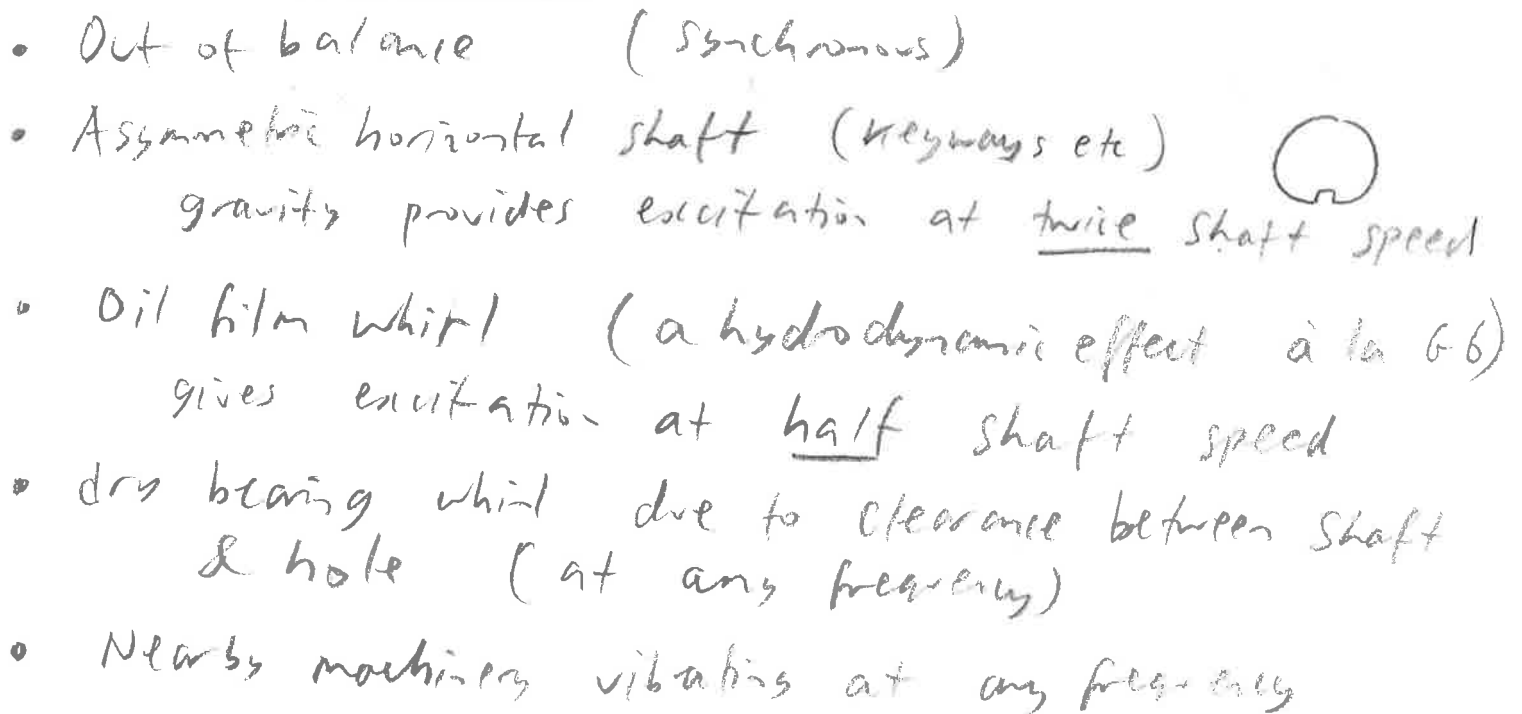 • Out of balance (synchronous)
• Asymmetric horizontal shaft (keyways etc)
gravity provides excitation at twice shaft speed
• Oil film whirl (a hydrodynamic effect à la G6)
gives excitation at half shaft speed
• dry bearing whirl due to clearance between shaft
& hole (at any frequency)
• Nearby machinery vibrating at any frequency